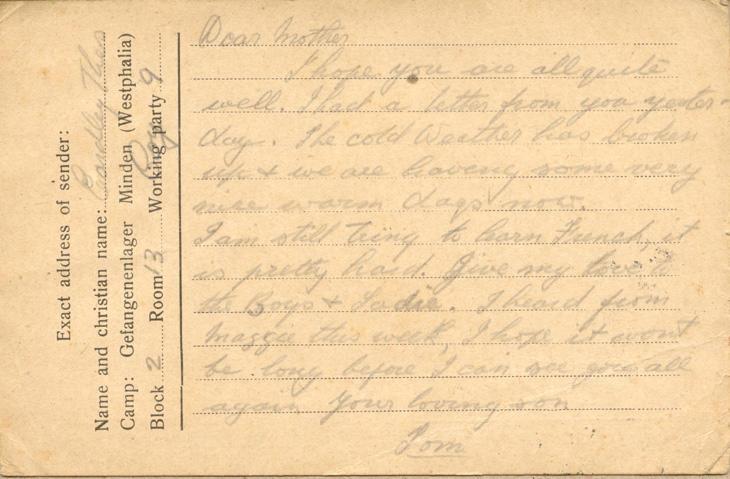 Exact address of sender:
Name and christian name: Eardley Thos
Camp: Gefangenenlager Minden (Westphalia)
Block 2 Room 13 Working party 9
Dear Mother
I hope you are all quite
well. I had a letter from you yester-
day. The cold Weather has broken
up & we are having some very
nice warm days now.
I am still tring to learn French, it
is pretty hard. Give my love to
the Boys & Sadie. I heard from
Maggie this week, I hope it wont
be long before I can see you all
again Your loving son
Tom